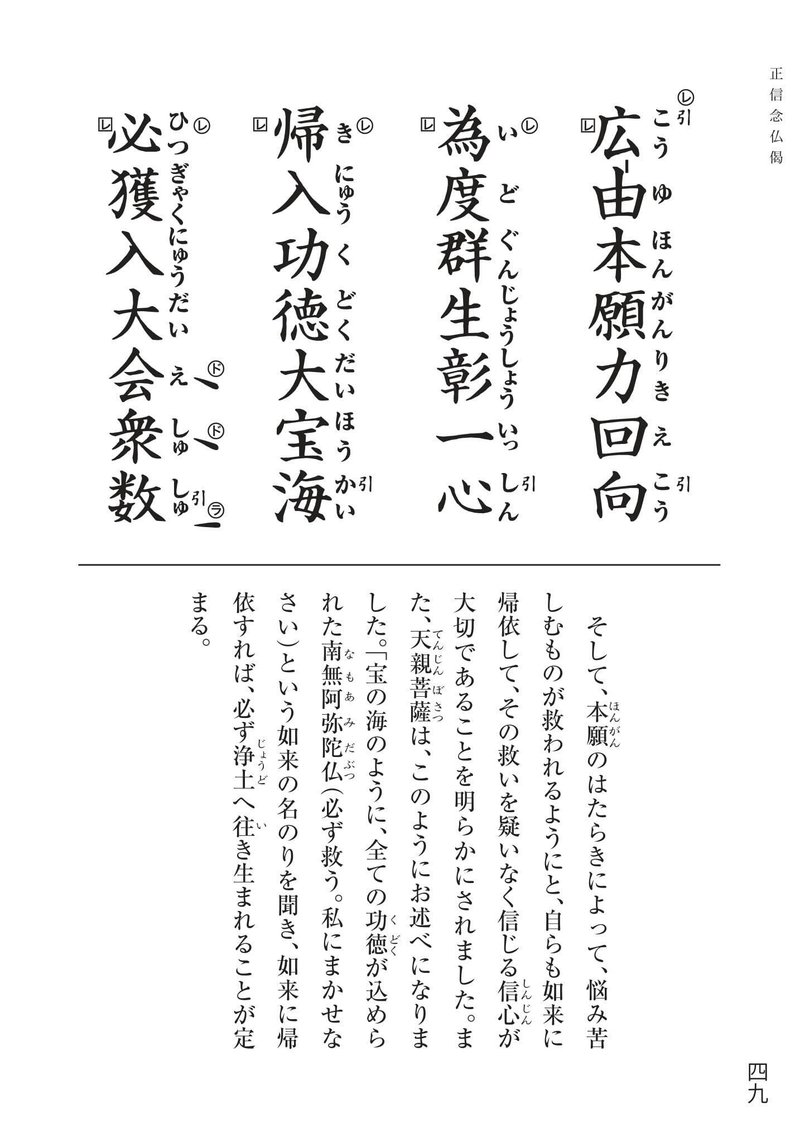 正信念仏偈
広由本願力回向
こうゆほんがんりきえこう
為度群生彰一心
いどぐんじょうしょういっしん
帰入功徳大宝海
きにゅうくどくだいほうかい
必獲入大会衆数
ひつぎゃくにゅうだいえしゅしゅ
㋹引
引
㋹
引
㋹
引
㋹
㋣
㋣
引㋶
そして、本願のはたらきによって、悩み苦
しむものが救われるようにと、自らも如来に
帰依して、その救いを疑いなく信じる信心が
大切であることを明らかにされました。ま
た、天親菩薩は、このようにお述べになりま
した。「宝の海のように、全ての功徳が込めら
れた南無阿弥陀仏（必ず救う。私にまかせな
さい）という如来の名のりを聞き、如来に帰
依すれば、必ず浄土へ往き生まれることが定
まる。
四九